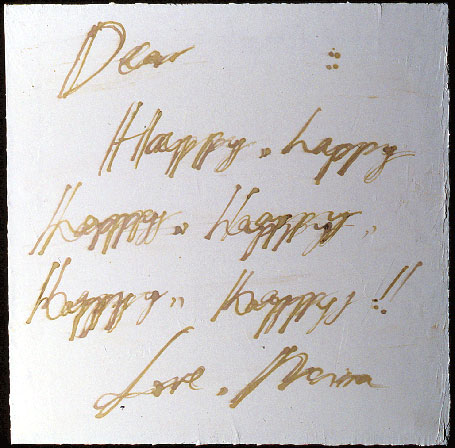 Dear :
Happy, happy
happy, happy,
Happy, Happy!!
Love,